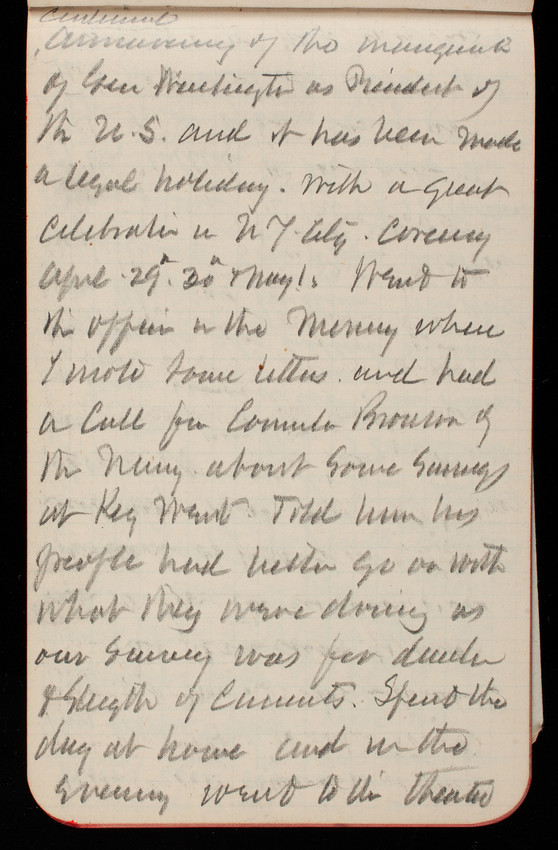 centennial
Anniversary of the inauguration
of Gen Washington as President of
the U.S. and it has been made
a legal holiday. With a great
Celebration in N Y City. Covering
April 29th. 30th & May 1s. Went to
the office in the morning where
I wrote some letters. and had
a Call from Commander of
the Navy about some surveys
at Key West. Told him his
people had better go on with
what they were doing as
our Survey was for
& Strength of Currents. Spent the
day at home and in the
evening went to the theatre